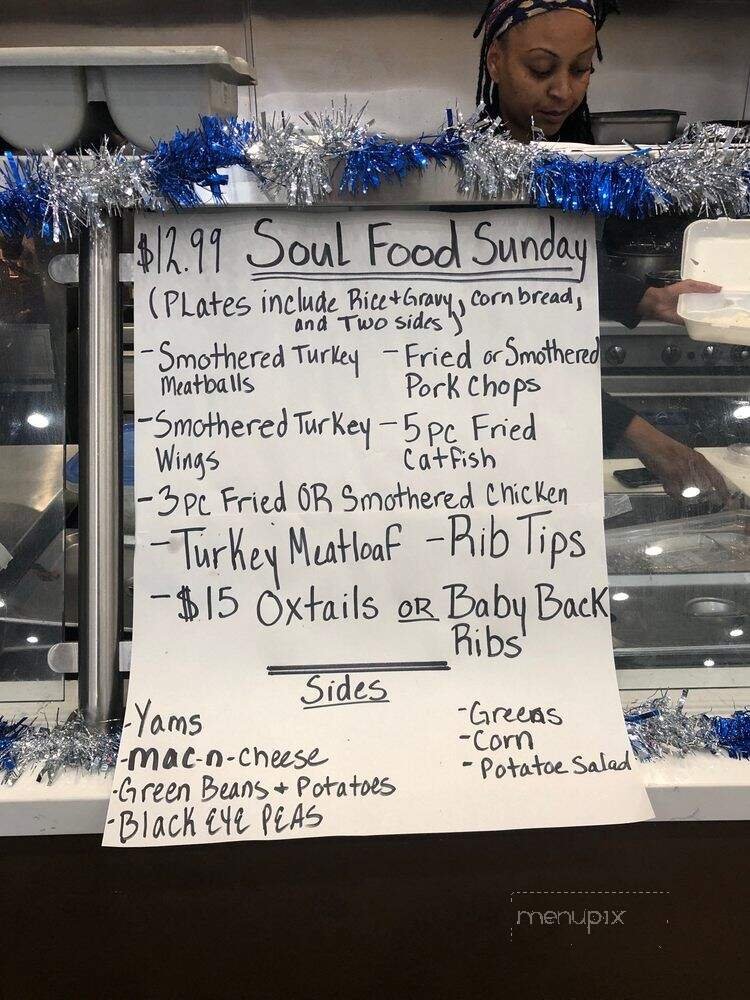 $12.99 Soul Food Sunday
(PLates include Rice + Gravy, cornbread,
and Two sides)
- Smothered Turkey Meatballs
- Fried or Smothered Pork Chops
- Smothered Turkey Wings
- 5 pc Fried Catfish
- 3pc Fried OR Smothered Chicken
- Turkey Meatloaf - Rib Tips
- $15 Oxtails OR Baby Back
Ribs
Sides
- Yams
- mac-n-cheese
- Green Beans + Potatoes
- BLACK EYE PEAS
- Greens
- Corn
- Potatoe Salad
menupix